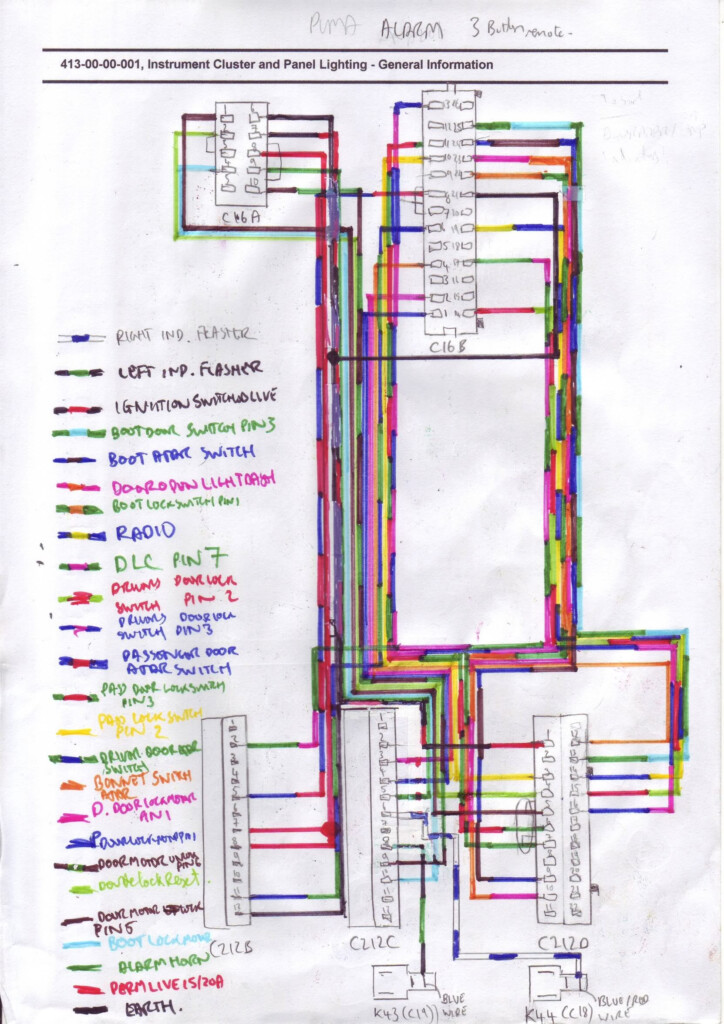 PUMA ALARM 3 Button remote.
413-00-00-001, Instrument Cluster and Panel Lighting - General Information
C46A
C16B
RIGHT IND. FLASHER
LEFT IND. FLASHER
IGNITION SWITCHED LIVE
BOOT DOOR SWITCH PIN 3
BOOT AJAR SWITCH
DOOR OPEN LIGHT DASH
BOOT LOCK SWITCH PIN 1
RADIO
DLC PIN 7
DRIVERS DOOR LOCK
SWITCH PIN 2
DRIVERS DOOR LOCK
SWITCH PIN 3
PASSENGER DOOR
AJAR SWITCH
PASS DOOR LOCK SWITCH
PIN 3
PASS LOCK SWITCH
PIN 2
DRIVER DOOR AJAR
SWITCH
BONNET SWITCH
AJAR
D. DOOR LOCK MOTOR
PIN 1
DOOR MOTOR UNLOCK
PIN 6
Double Lock Reset.
DOOR MOTOR LOCK
PIN 5
BOOT LOCK MOTOR
ALARM HORN
PERM LIVE 15/20A
EARTH.
C212B
C212C
C212D
K43 (C19)
BLUE
WIRE
K44 (C18)
BLUE/RED
WIRE